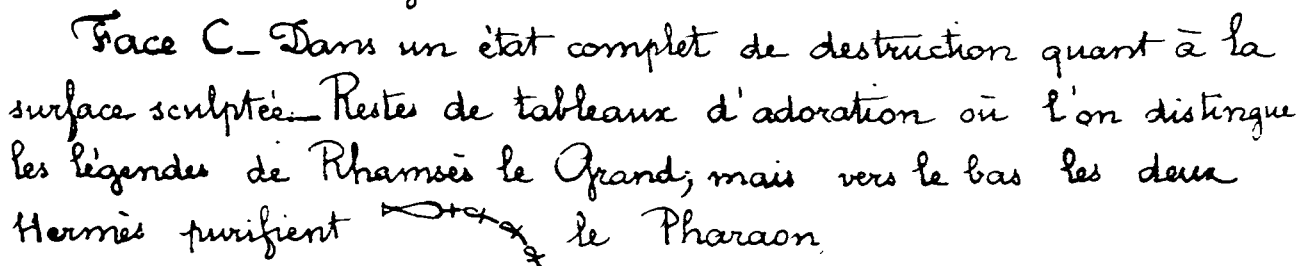 Face C_ Dans un état complet de destruction quant à la
surface sculptée._ Restes de tableaux d'adoration où l'on distingue
les légendes de Rhamsès le Grand; mais vers le bas les deux
Hermès purifient le Pharaon